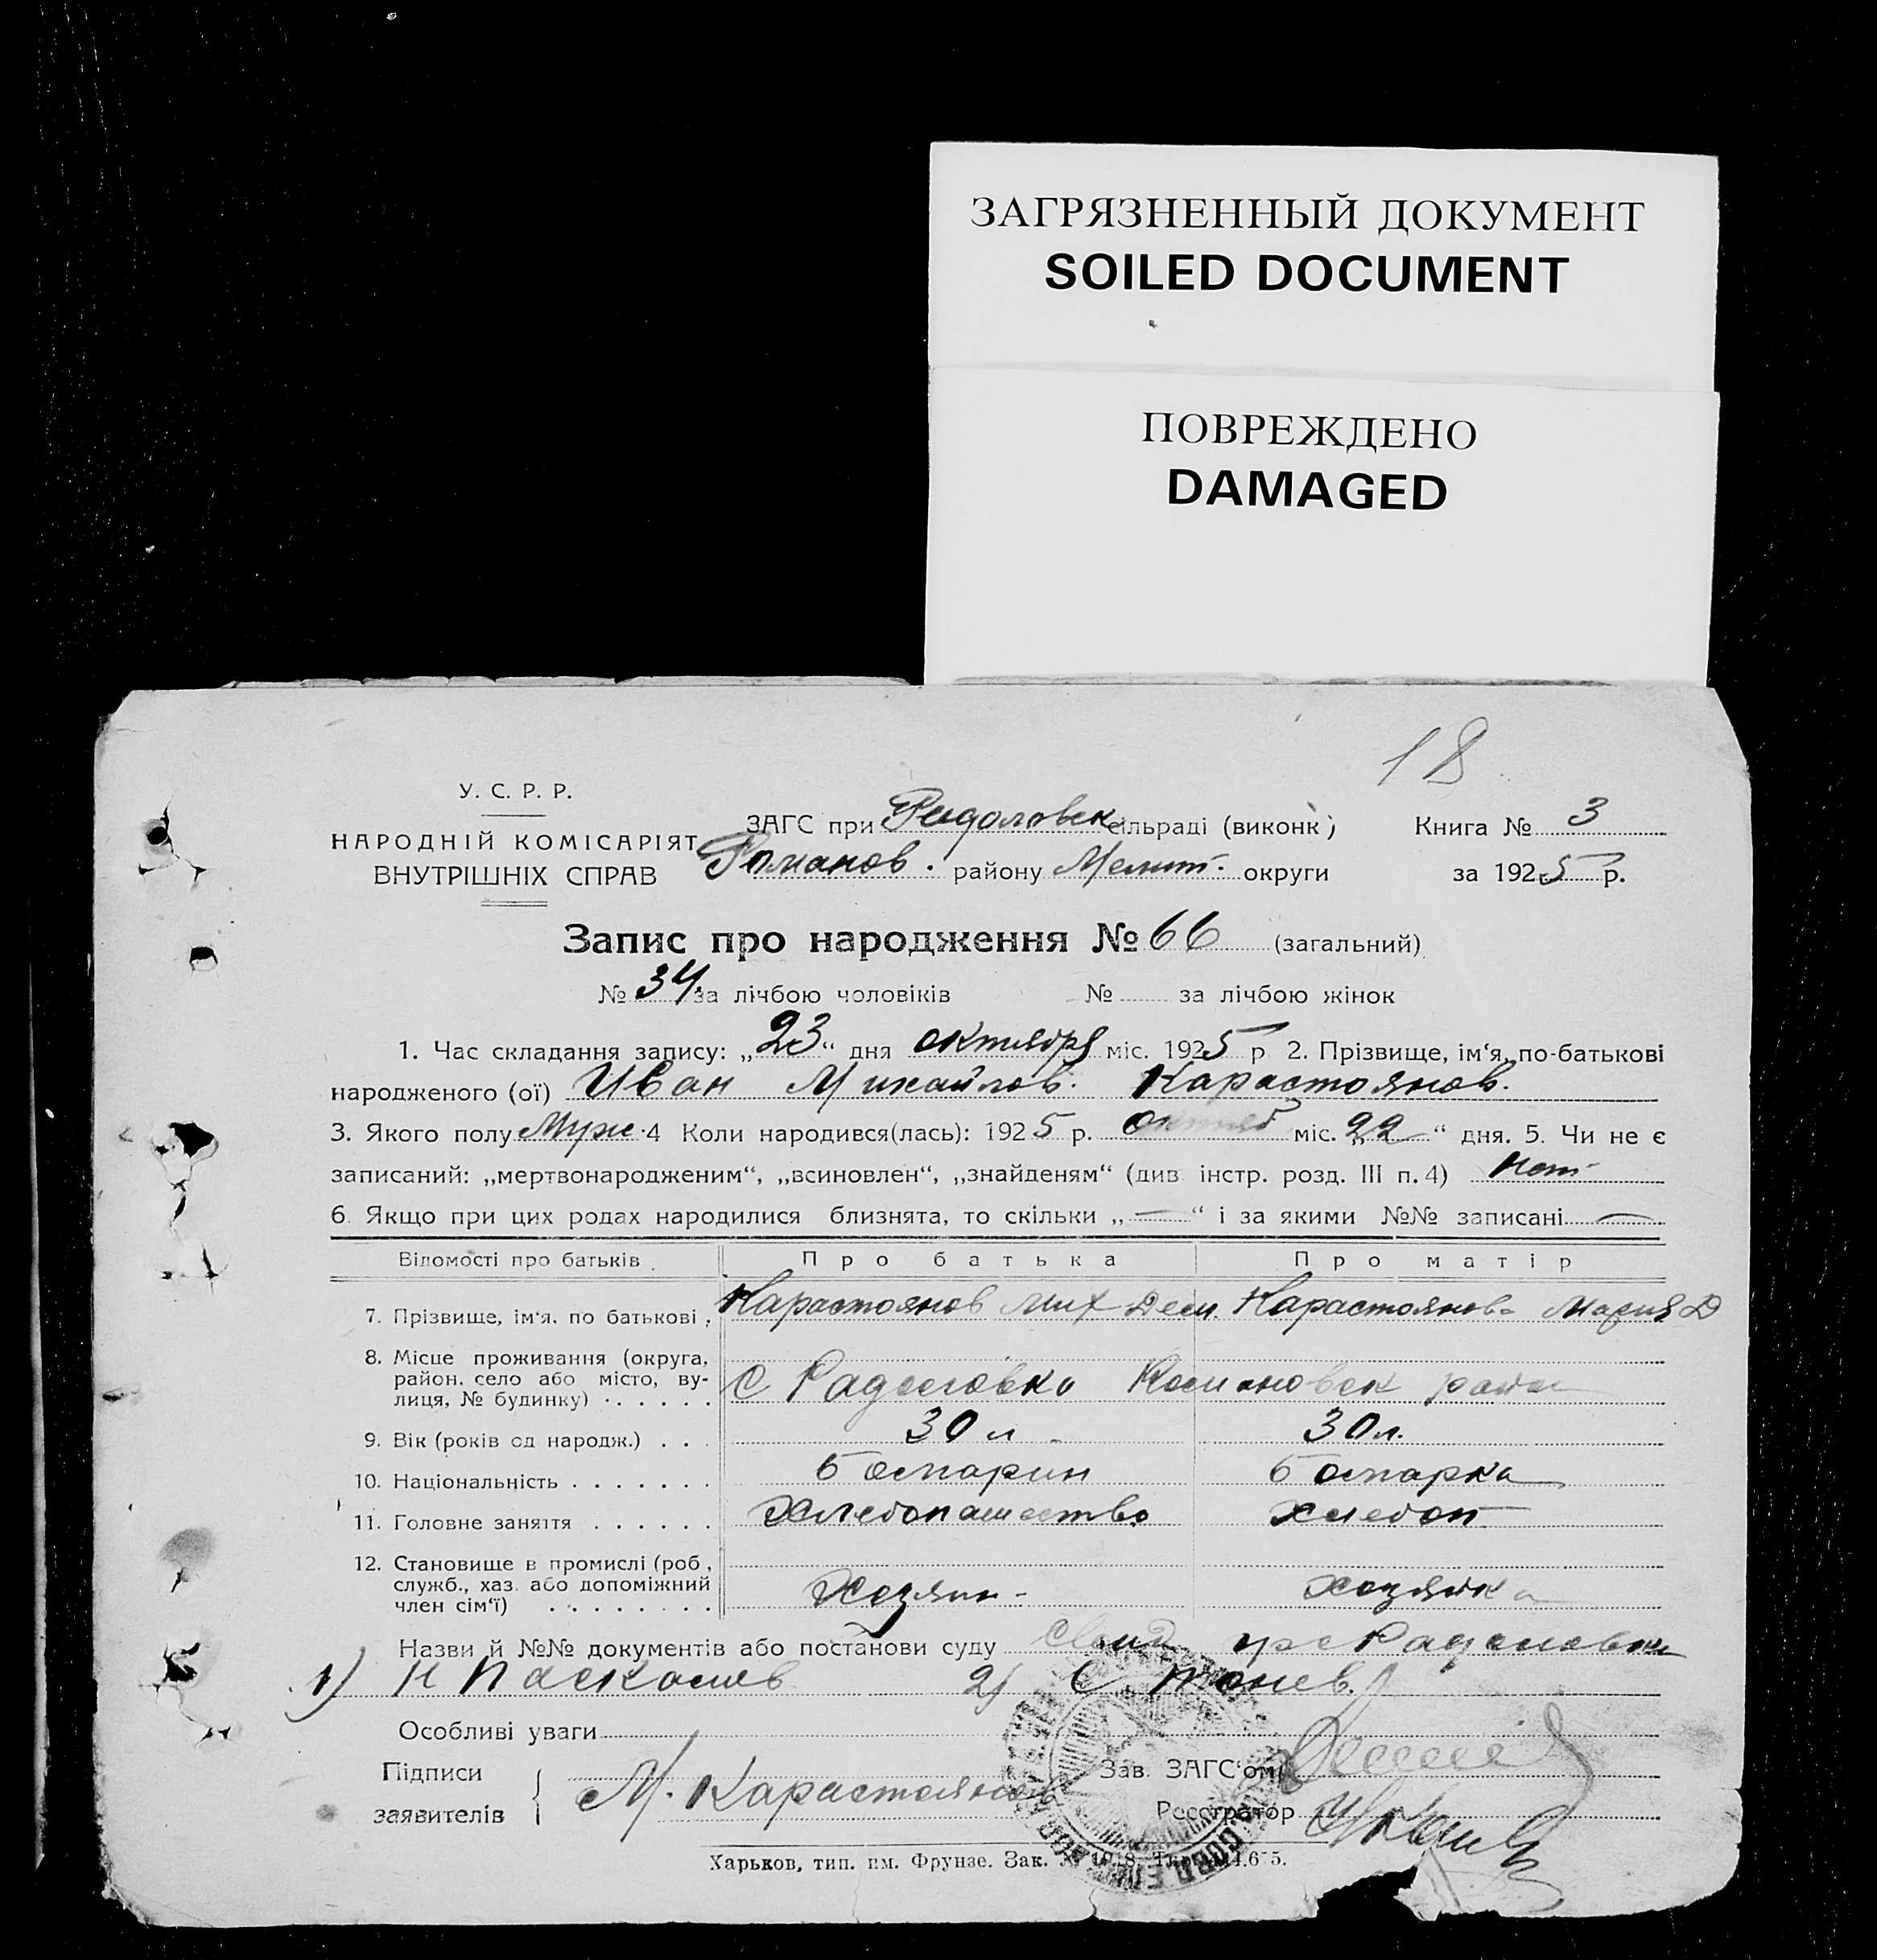 ЗАГРЯЗНЕННЫЙ ДОКУМЕНТ
SOILED DOCUMENT
ПОВРЕЖДЕНО
DAMAGED
18
У. С. Р. Р.
НАРОДНІЙ КОМІСАРІЯТ
ВНУТРІШНІХ СПРАВ
ЗАГС при сільраді (виконк) Книга № 3
Романов. району Мелит. округи за 1925 р.
Запис про народження № 66 (загальний)
№ 34. за лічбою чоловіків № за лічбою жінок
1. Час складання запису: „23“ дня октября міс. 1925 р 2. Прізвище, ім‘я, по-батькові
народженого (ої) Иван Михайлов. Карастоянов.
3. Якого полу Муж. 4 Коли народився(лась): 1925 р. Октяб міс. „22“ дня. 5. Чи не є
записаний: „мертвонародженим“, „всиновлен“, „знайденям“ (див. інстр. розд. III п. 4) Нет
6. Якщо при цих родах народилися близнята, то скільки „—“ і за якими №№ записані —
Відомості про батьків. Про батька Про матір
7. Прізвище, ім‘я, по батькові. Карастоянов Мих Дем. Карастоянова Мария Д
8. Місце проживання (округа,
район, село або місто, ву-
лиця, № будинку) . . . . . С Радоловка Романовск района
9. Вік (років од народж.) . . . 30 л 30 л.
10. Національність . . . . . . . болгарин болгарка
11. Головне заняття . . . . . . Хлебопашество хлебоп
12. Становище в промислі (роб.,
служб., хаз. або допоміжний
член сім‘ї) . . . . . . . . Хозяин - хозяйка
Назви й №№ документів або постанови суду
1) Н Паскалев 2) С Тонев.
Особливі уваги
Підписи
заявителів
М. Карастоянов
Зав. ЗАГС‘ом
Реєстратор
Харьков, тип. им. Фрунзе. Зак.